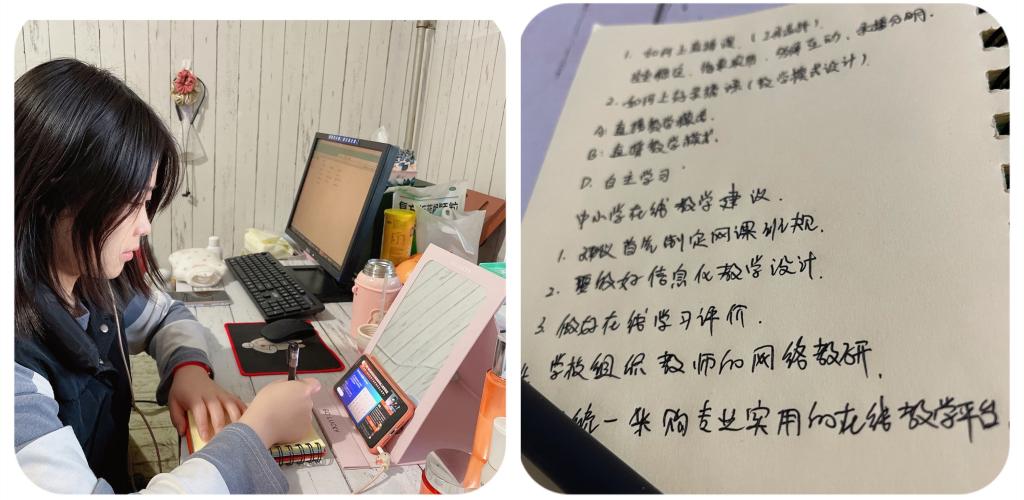 1. 如何上直播课.(工具选择).
互动, 录播分明.
2. 如何上好录播课(教学模式设计)
A. 直播教学模式.
B. 直播教学模式.
D. 自主学习.
中小学在线教学建议.
1. 建议首先制定网课班规.
2. 要做好信息化教学设计.
3. 做好在线学习评价.
学校组织教师的网络教研.
统一采购专业实用的在线教学平台